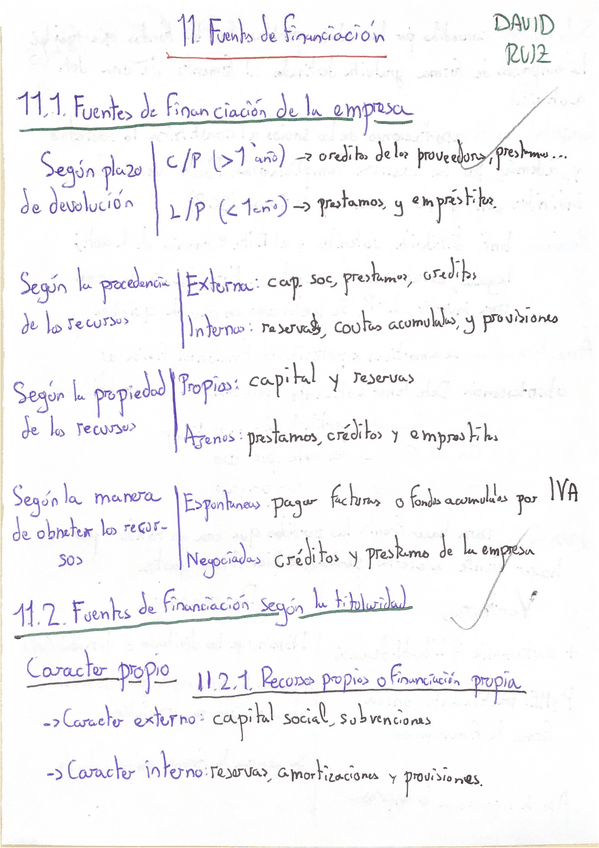 11. Fuentes de financiación
DAVID
RUIZ
11.1. Fuentes de financiación de la empresa
Según plazo
de devolución
C/P (>1 año) → creditos de los proveedores, prestamos...
L/P (<1 año) → prestamos, y empréstitos.
Según la procedencia
de los recursos
Externa: cap. soc, prestamos, creditos
Interna: reservas, coutas acumuladas, y provisiones
Según la propiedad
de los recursos
Propios: capital y reservas
Ajenos: prestamos, créditos y emprestitos
Según la manera
de obneter los recur-
sos
Espontaneas pagar facturas o fondos acumulados por IVA
Negociadas créditos y prestamo de la empresa
11.2. Fuentes de financiación según la titularidad
Caracter propio
11.2.1. Recursos propios o financiación propia
-> Caracter externo: capital social, subvenciones
-> Caracter interno: reservas, amortizaciones y provisiones.